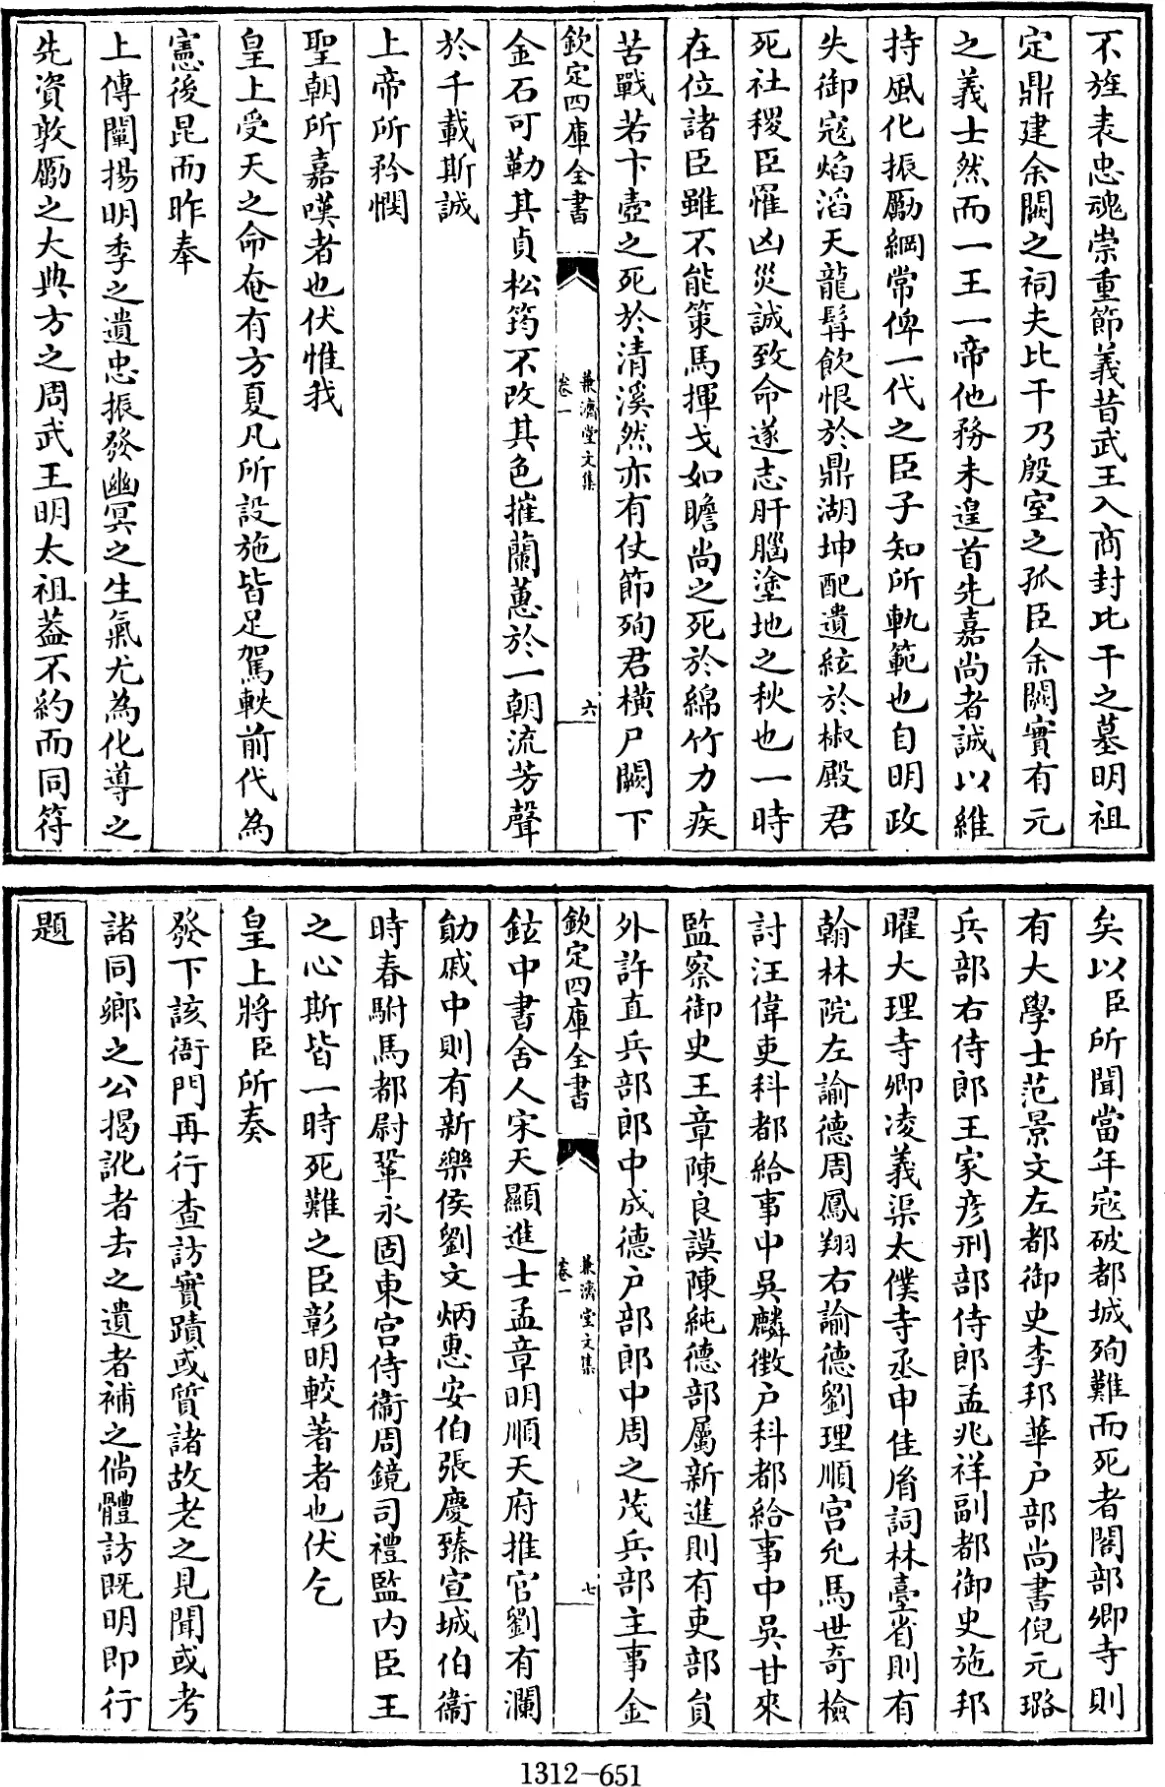 不旌表忠魂崇重節義昔武王入商封比干之墓明祖
定鼎建余闕之祠夫比干乃殷室之孤臣余闕實有元
之義士然而一王一帝他務未遑首先嘉尚者誠以維
持風化振勵綱常俾一代之臣子知所軌範也自明政
失御寇焰滔天龍髯飲恨於鼎湖坤配遺絃於椒殿君
死社稷臣罹凶災誠致命遂志肝腦塗地之秋也一時
在位諸臣雖不能策馬揮戈如瞻尚之死於綿竹力疾
苦戰若卞壼之死於清溪然亦有仗節殉君橫尸闕下
欽定四庫全書
兼濟堂文集
卷一
六
金石可勒其貞松筠不改其色摧蘭蕙於一朝流芳聲
於千載斯誠
上帝所矜憫
聖朝所嘉嘆者也伏惟我
皇上受天之命奄有方夏凡所設施皆足駕軼前代為
憲後昆而昨奉
上傳闡揚明季之遺忠振發幽冥之生氣尤為化導之
先資敦勵之大典方之周武王明太祖蓋不約而同符
矣以臣所聞當年寇破都城殉難而死者閣部卿寺則
有大學士范景文左都御史李邦華户部尚書倪元璐
兵部右侍郎王家彦刑部侍郎孟兆祥副都御史施邦
曜大理寺卿凌義渠太僕寺丞申佳胤詞林臺省則有
翰林院左諭德周鳳翔右諭德劉理順宫允馬世奇檢
討汪偉吏科都給事中吳麟徵户科都給事中吳甘來
監察御史王章陳良謨陳純德部屬新進則有吏部員
外許直兵部郎中成德户部郎中周之茂兵部主事金
欽定四庫全書
兼濟堂文集
卷一
七
鉉中書舍人宋天顯進士孟章明順天府推官劉有瀾
勛戚中則有新樂侯劉文炳惠安伯張慶臻宣城伯衛
時春駙馬都尉鞏永固東宫侍衛周鏡司禮監内臣王
之心斯皆一時死難之臣彰明較著者也伏乞
皇上將臣所奏
發下該衙門再行查訪實蹟或質諸故老之見聞或考
諸同鄉之公揭訛者去之遺者補之倘體訪既明即行
題
1312-651